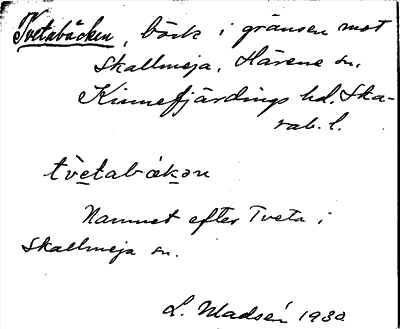 Tvetabäcken, bäck i gränsen mot
Skallmeja, Härene sn,
Kinnefjärdings hd. Ska-
rab. l.
tv̀etabäkən
Namnet efter Tveta i
Skallmeja sn.
L. Madsén 1930